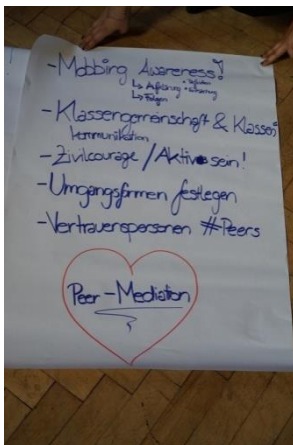 - Mobbing Awareness!
↳ Aufklärung
↳ Folgen
- Klassengemeinschaft & Klassen
kommunikation
- Zivilcourage / Aktiv sein!
- Umgangsformen festlegen
- Vertrauenspersonen #Peers
Peer-Mediation